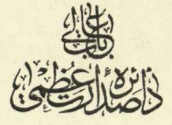 باب عالی
دائرهٔ صدارت عظمی